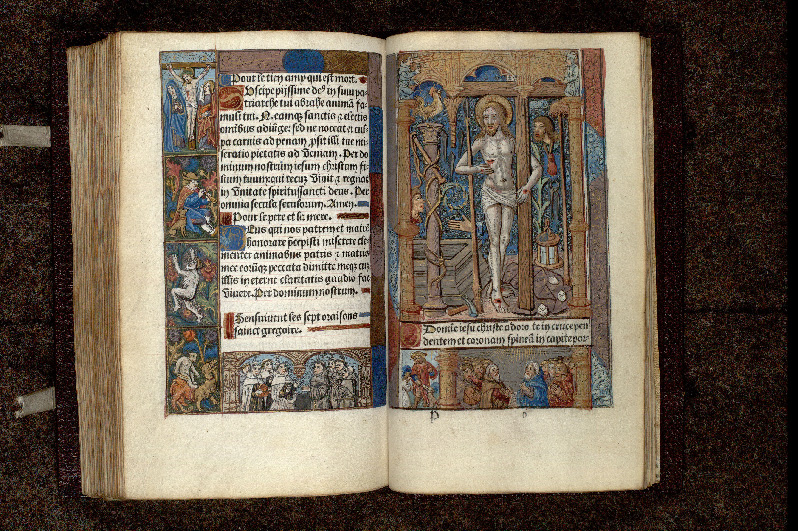 Pour le tien amy qui est mort.
Uscipe pijssime deꝰ in sinu pa-
triarche tui abrahe animā fa-
muli tui. N. eamqꝫ sanctis ⁊ electis
omnibus adiūge: sed ne noceat ei cul-
pa carnis ad penam ꝓsit illi tue mi-
seratio pietatis ad veniam. Per do-
minum nostrum iesum christum fi-
lium tuum: qui tecū vivit ⁊ regnat
in unitate spiritussancti deus. Per
omnia secula seculorum. Amen.
Pour se pere et se mere.
Eus qui nos patrem et matrē
honorare p̄cepisti miserere cle-
menter animabus patris ⁊ matris
mee eorūqꝫ peccata dimitte meqꝫ cū
illis in eterne claritatis gaudio fac
vivere. Per dominum nostrum.
Sensuivent les sept oraisons
sainct gregoire.
Domine iesu christe adoro te in cruce pen
dentem et coronam spineā in capite por-